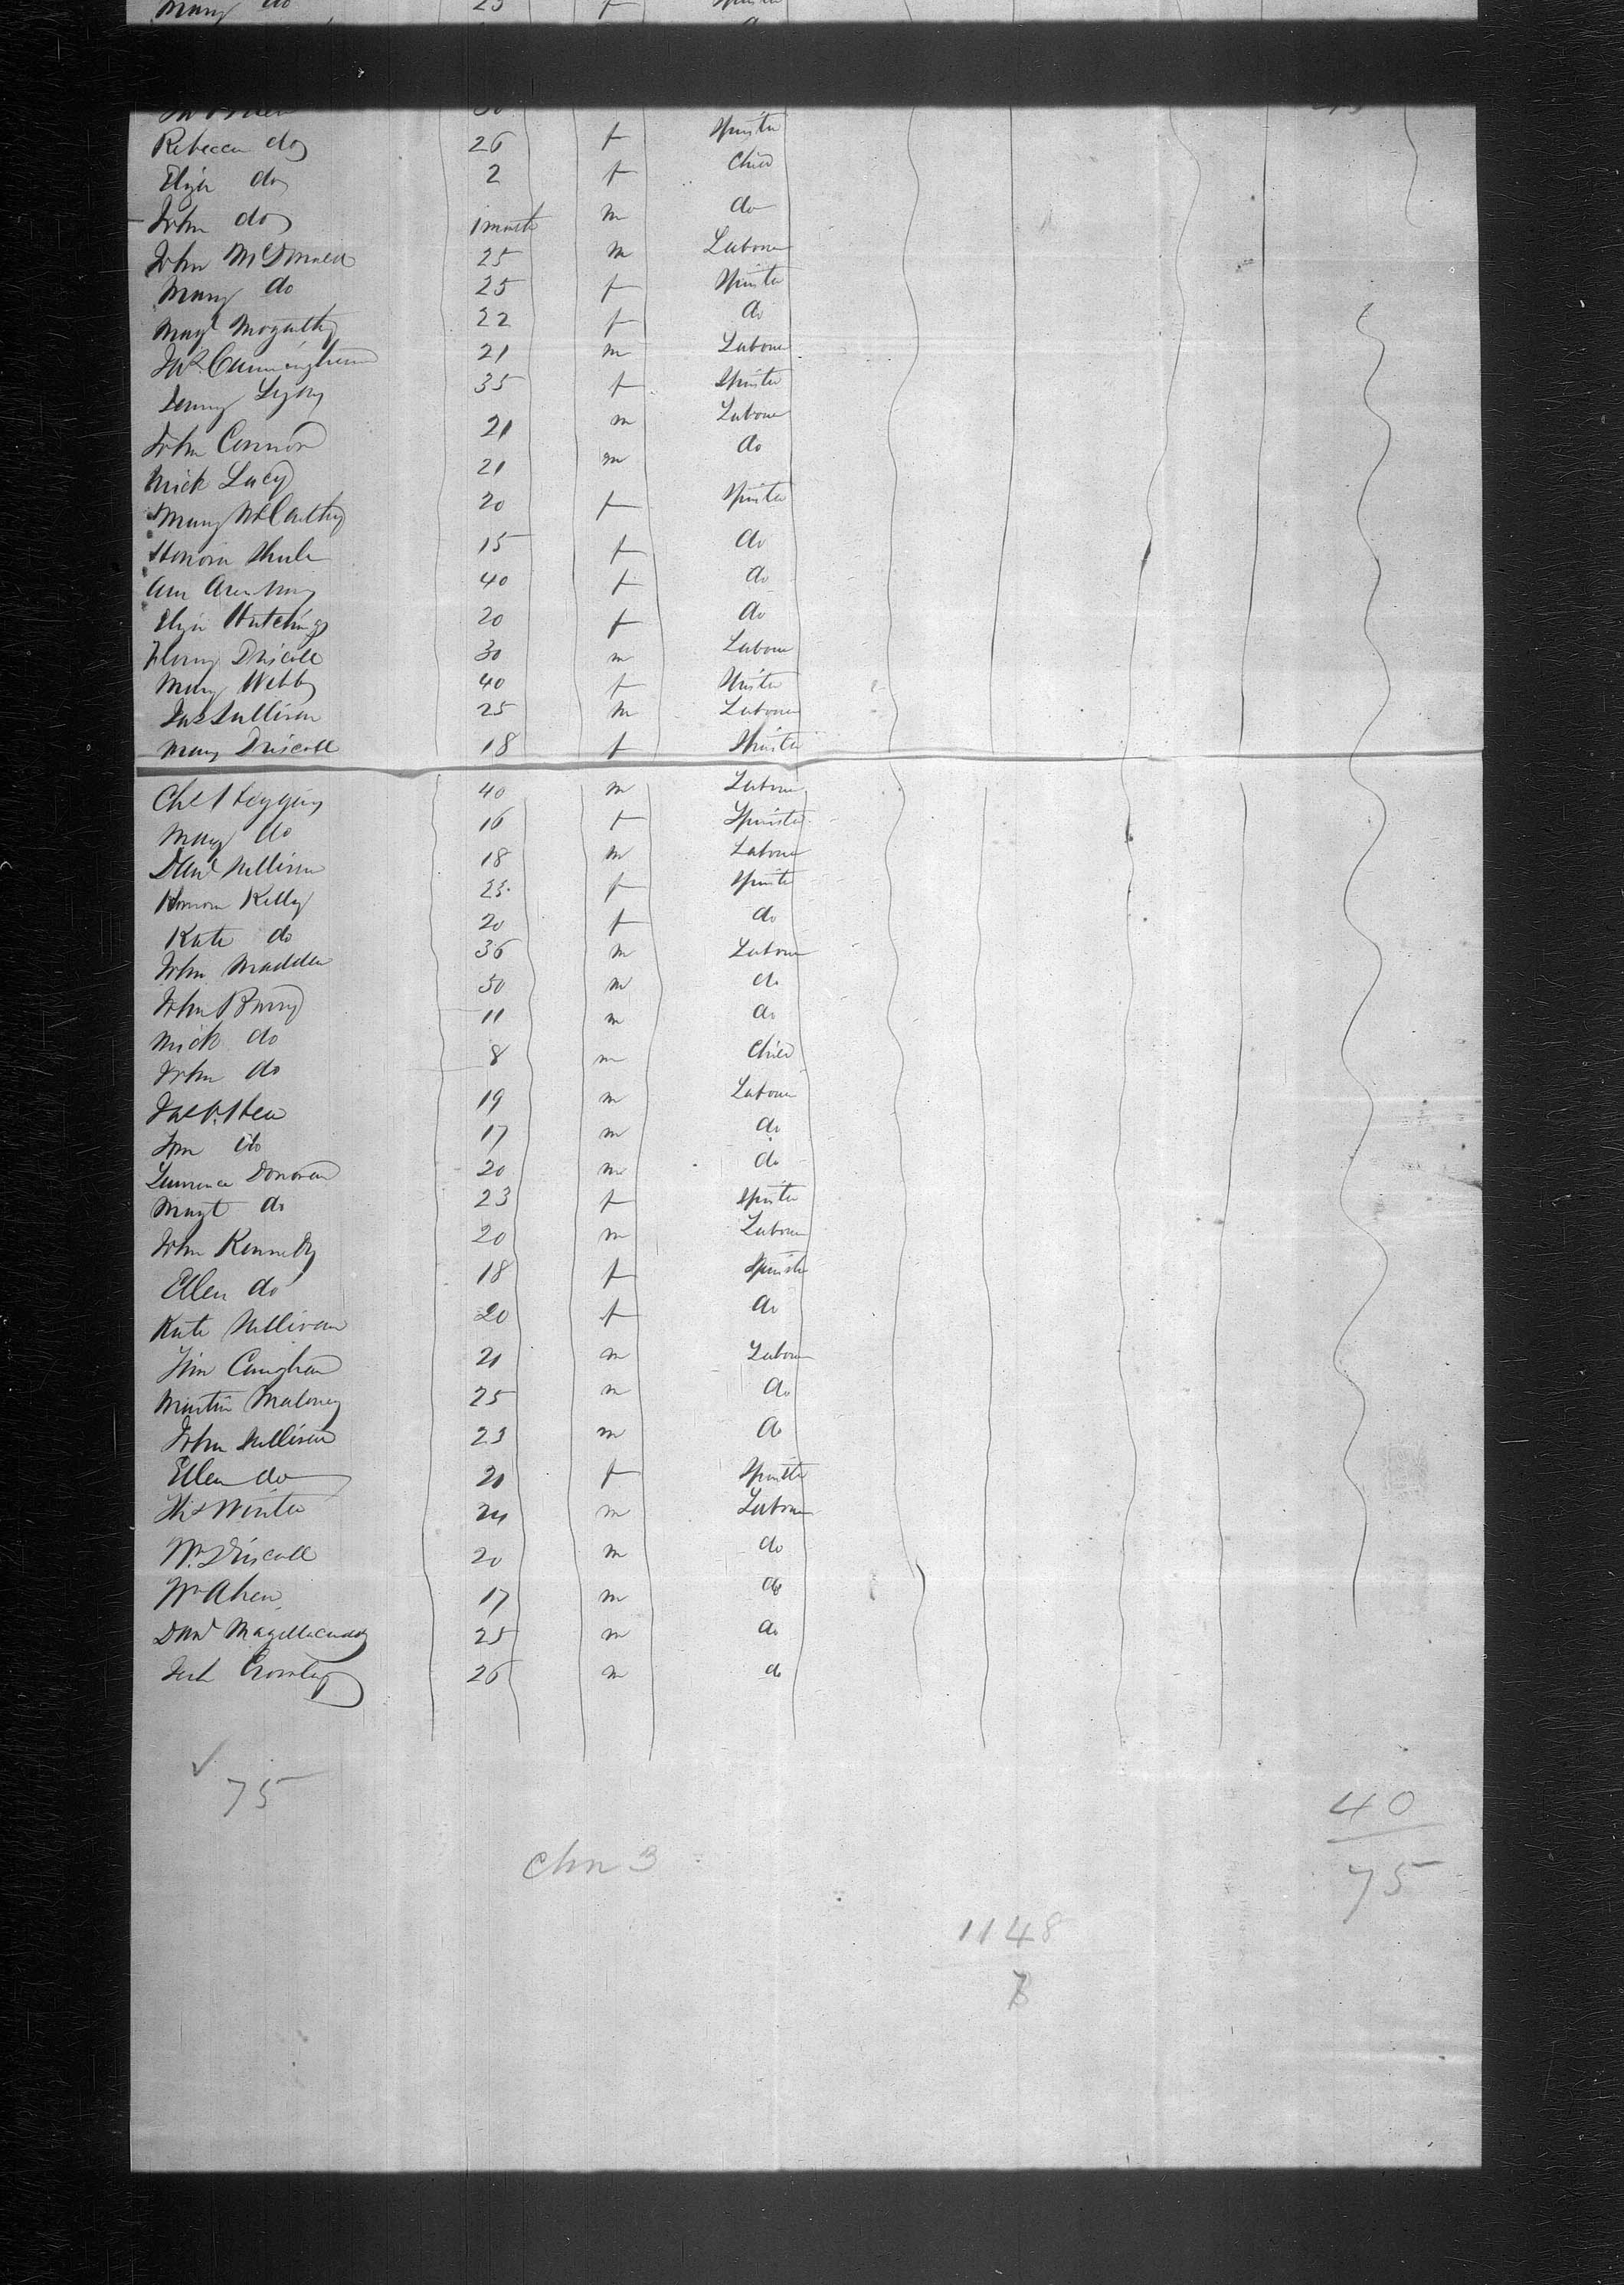 Mary do 25 f Spinster
30 45
Rebecca do 26 f Spinster
Eliza do 2 f Child
John do 1 month m do
John McDonald 25 m Labourer
Mary do 25 f Spinster
Magt 22 f do
Jas Cunningham 21 m Labourer
35 f Spinster
John Connor 21 m Labourer
Mick Lacy 21 m do
Mary McCarthy 20 f Spinster
Honora 15 f do
Ann 40 f do
Eliza Hutchings 20 f do
Driscoll 30 m Labourer
Mary Webb 40 f Spinster
Jas Sullivan 25 m Labourer
Mary Driscoll 18 f Spinster
Chs Heggins 40 m Labourer
Mary do 16 f Spinster
Danl Sullivan 18 m Labourer
Honora Kelly 25 f Spinster
Kate do 20 f do
John Madden 36 m Labourer
John Barry 50 m do
Mick do 11 m do
John do 8 m Child
Jas 19 m Labourer
do 17 m do
Laurence Donovan 20 m do
Magt do 23 f Spinster
John Kennedy 20 m Labourer
Ellen do 18 f Spinster
Kate Sullivan 20 f do
Tim 21 m Labourer
Martin Maloney 25 m do
John Sullivan 23 m do
Ellen do 20 f Spinster
Ths Winter 24 m Labourer
Wm Driscoll 20 m do
Wm Ahern 17 m do
Danl Magillacuddy 25 m do
Jerh Crowley 26 m do
75 40
chn 3 75
1148